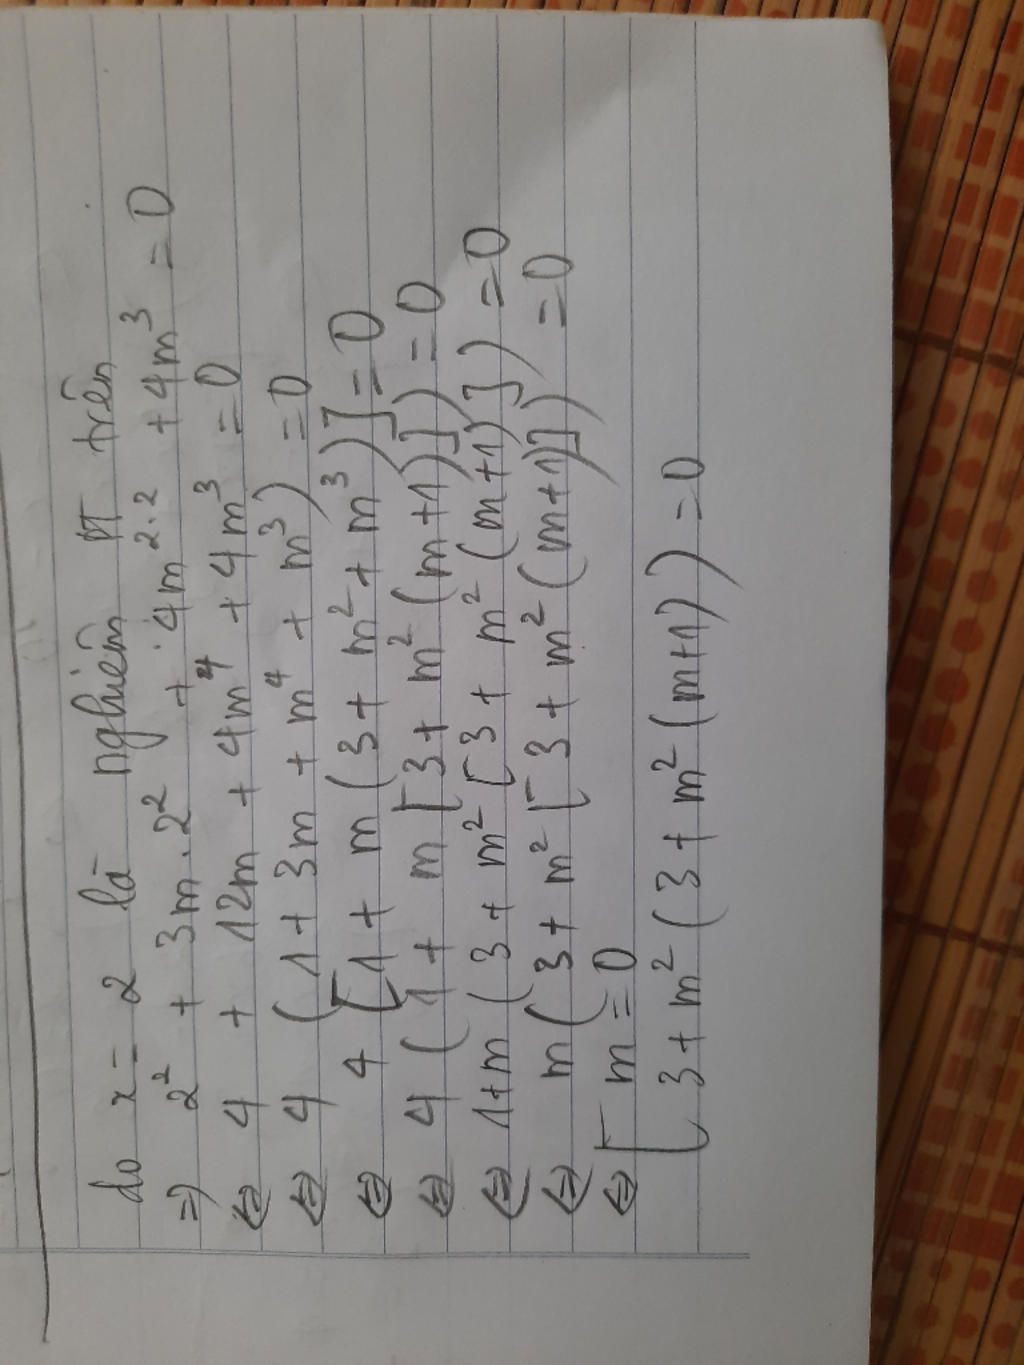 do x = 2 là nghiệm PT trên
⇒ 2² + 3m.2² + 4m^2.2 + 4m³ = 0
⇔ 4 + 12m + 4m⁴ + 4m³ = 0
⇔ 4 (1 + 3m + m⁴ + m³) = 0
⇔ 4 [1 + m (3 + m² + m³)] = 0
⇔ 4 (1 + m [3 + m² (m+1)]) = 0
⇔ 1+m (3 + m² [3 + m² (m+1)]) = 0
⇔ m (3 + m² [3 + m² (m+1)]) = 0
⇔ [ m = 0
[ 3 + m² (3 + m² (m+1)) = 0